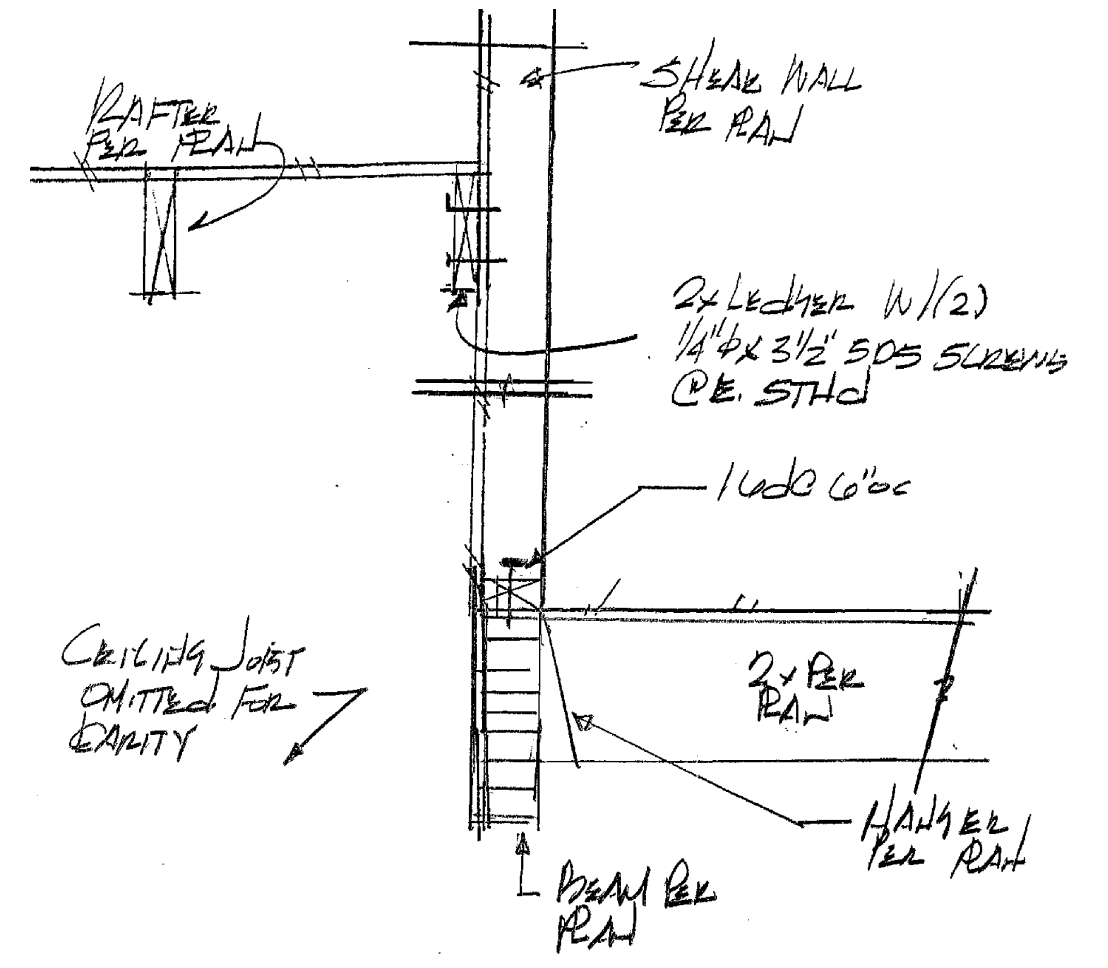 RAFTER
PER PLAN
SHEAR WALL
PER PLAN
2x LEDGER W/(2)
1/4"φ x 3 1/2" SDS SCREWS
@ E. STUD
16d@ 6"oc
CEILING JOIST
OMITTED FOR
CLARITY
2x PER
PLAN
HANGER
PER PLAN
BEAM PER
PLAN